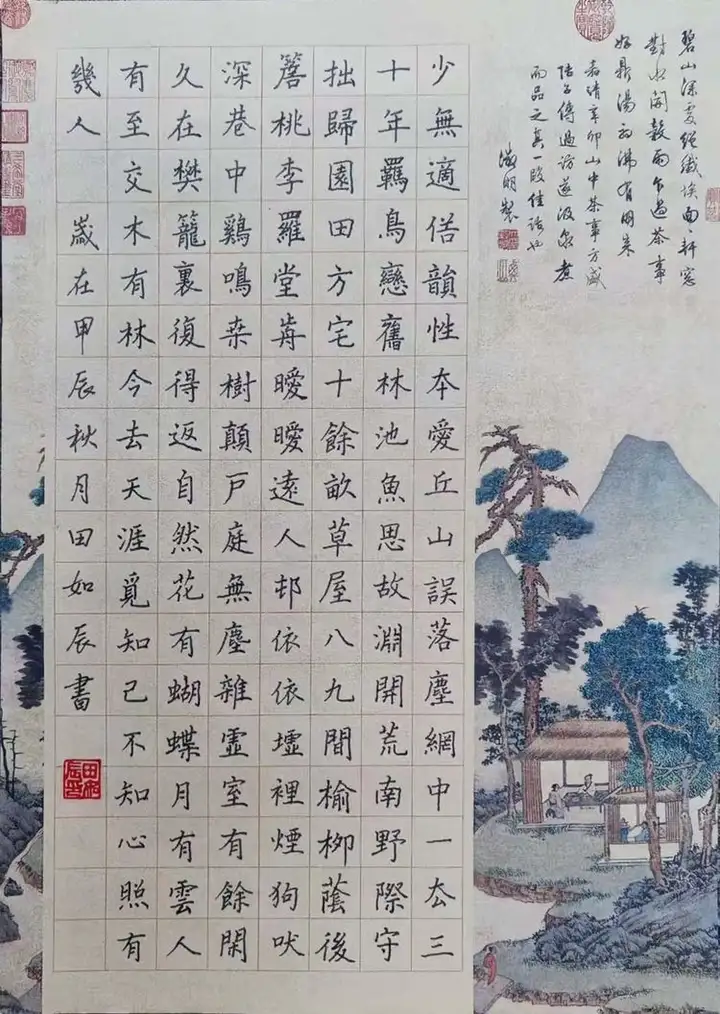 碧山深處絕纖埃面〻軒窓
對水開穀雨乍過茶事
好鼎湯初沸有朋來
嘉靖辛卯山中茶事方盛
陸子傳過訪遂汲泉煮
而品之真一段佳話也
徵明製
少無適俗韻性夲愛丘山誤落塵網中一厺三
十年羈鳥戀舊林池魚思故淵開荒南野際守
拙歸園田方宅十餘畝草屋八九間榆柳蔭後
簷桃李羅堂歬曖曖遠人邨依依墟裡煙狗吠
深巷中鷄鳴桒樹顛戶庭無塵雜虛室有餘閑
久在樊籠裏復得返自然花有蝴蝶月有雲人
有至交木有林今去天涯覓知己不知心照有
幾人 歲在甲辰秋月田如辰書
田如辰印